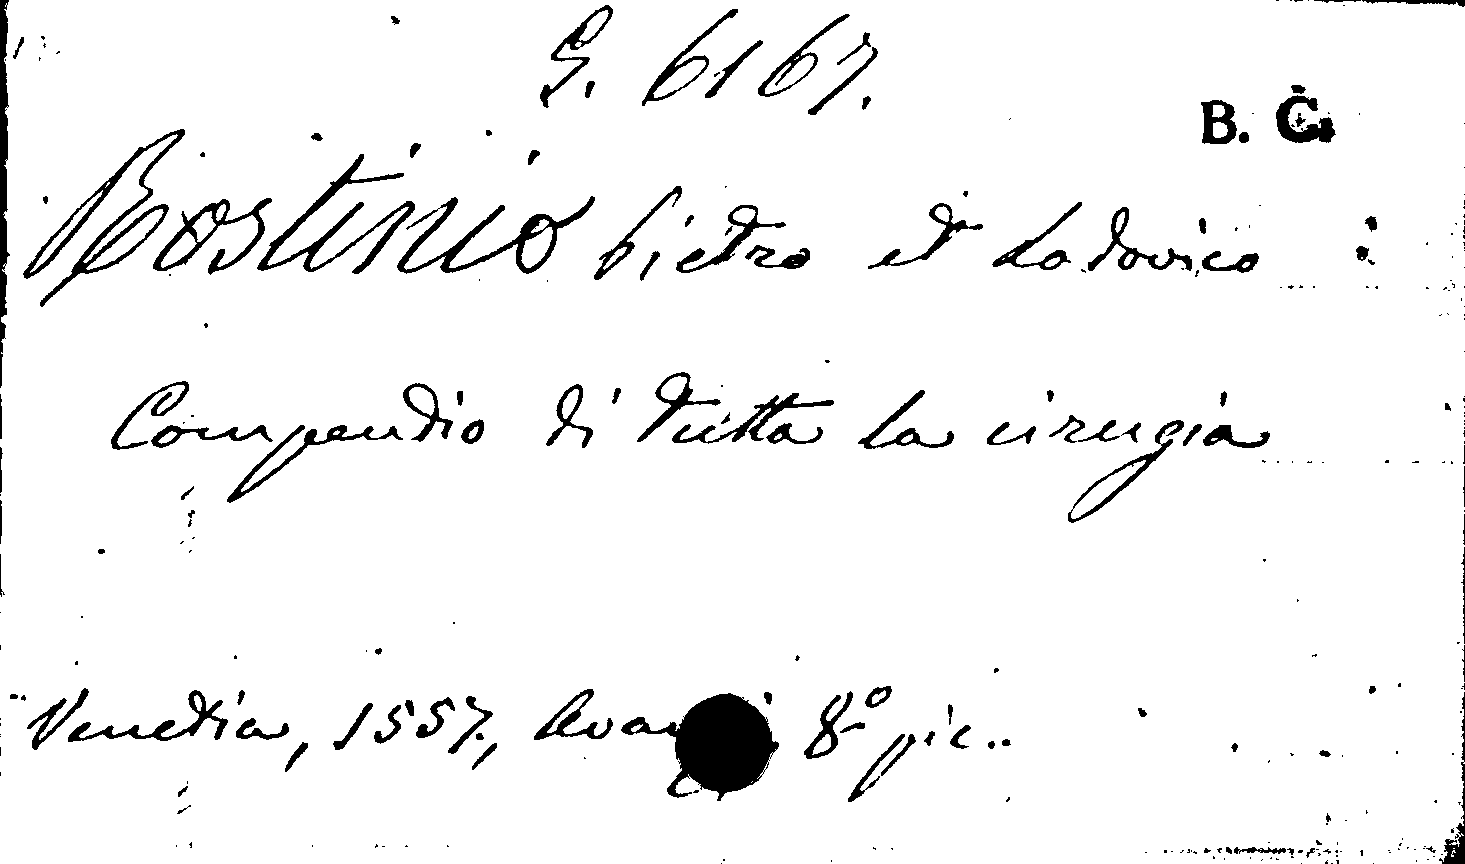 G. 6167.
B. C.
Rostinio Pietro et Lodovico :
Compendio di tutta la cirugia
Venetia, 1557, 8º pic..